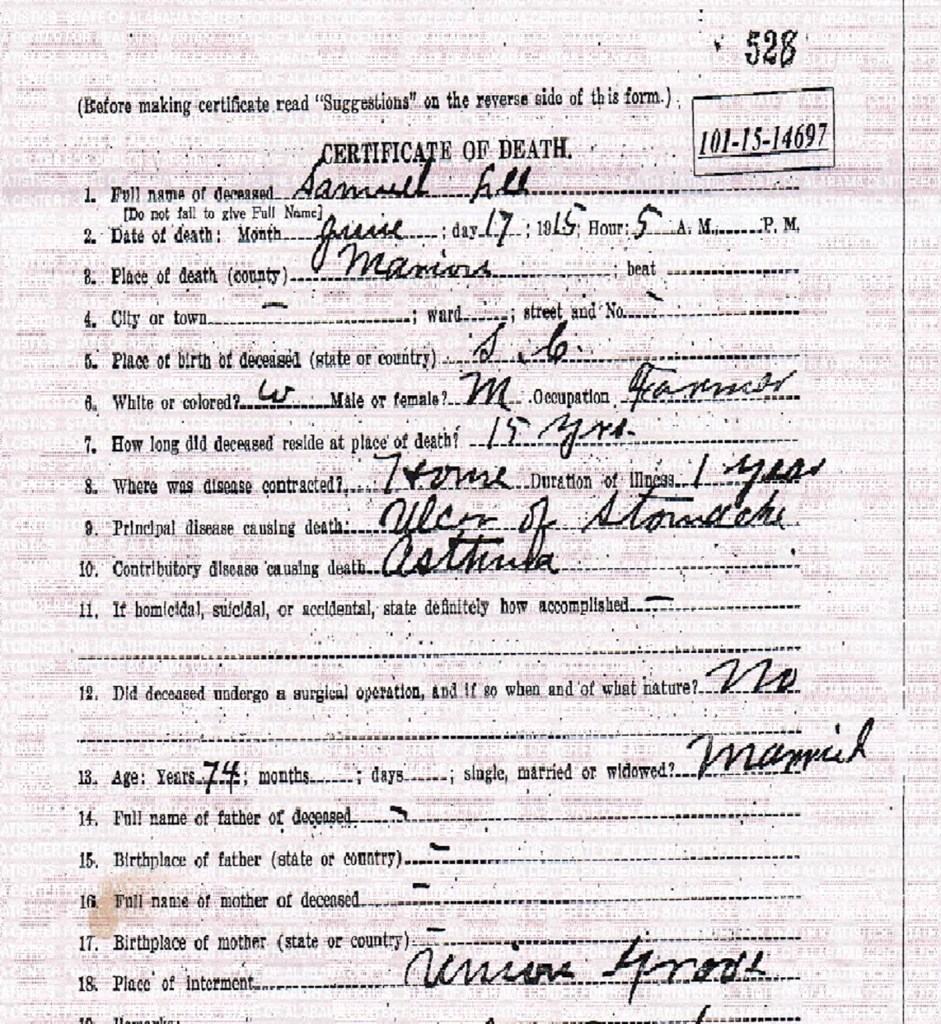 528
(Before making certificate read "Suggestions" on the reverse side of this form.)
101-15-14697
CERTIFICATE OF DEATH.
1. Full name of deceased Samuel Lee
[Do not fail to give Full Name]
2. Date of death: Month June ; day 17 ; 1915; Hour: 5 A. M., P. M.
3. Place of death (county) Marion ; beat
4. City or town — ; ward ; street and No. -
5. Place of birth of deceased (state or country) S. C.
6. White or colored? W Male or female? M Occupation Farmer
7. How long did deceased reside at place of death? 15 yrs.
8. Where was disease contracted? Home Duration of illness 1 year
9. Principal disease causing death: Ulcer of Stomache
10. Contributory disease causing death Asthma
11. If homicidal, suicidal, or accidental, state definitely how accomplished —
12. Did deceased undergo a surgical operation, and if so when and of what nature? No
13. Age: Years 74; months ; days ; single, married or widowed? Married
14. Full name of father of deceased -
15. Birthplace of father (state or country) -
16. Full name of mother of deceased -
17. Birthplace of mother (state or country) -
18. Place of interment Union Grove
19. Remarks: